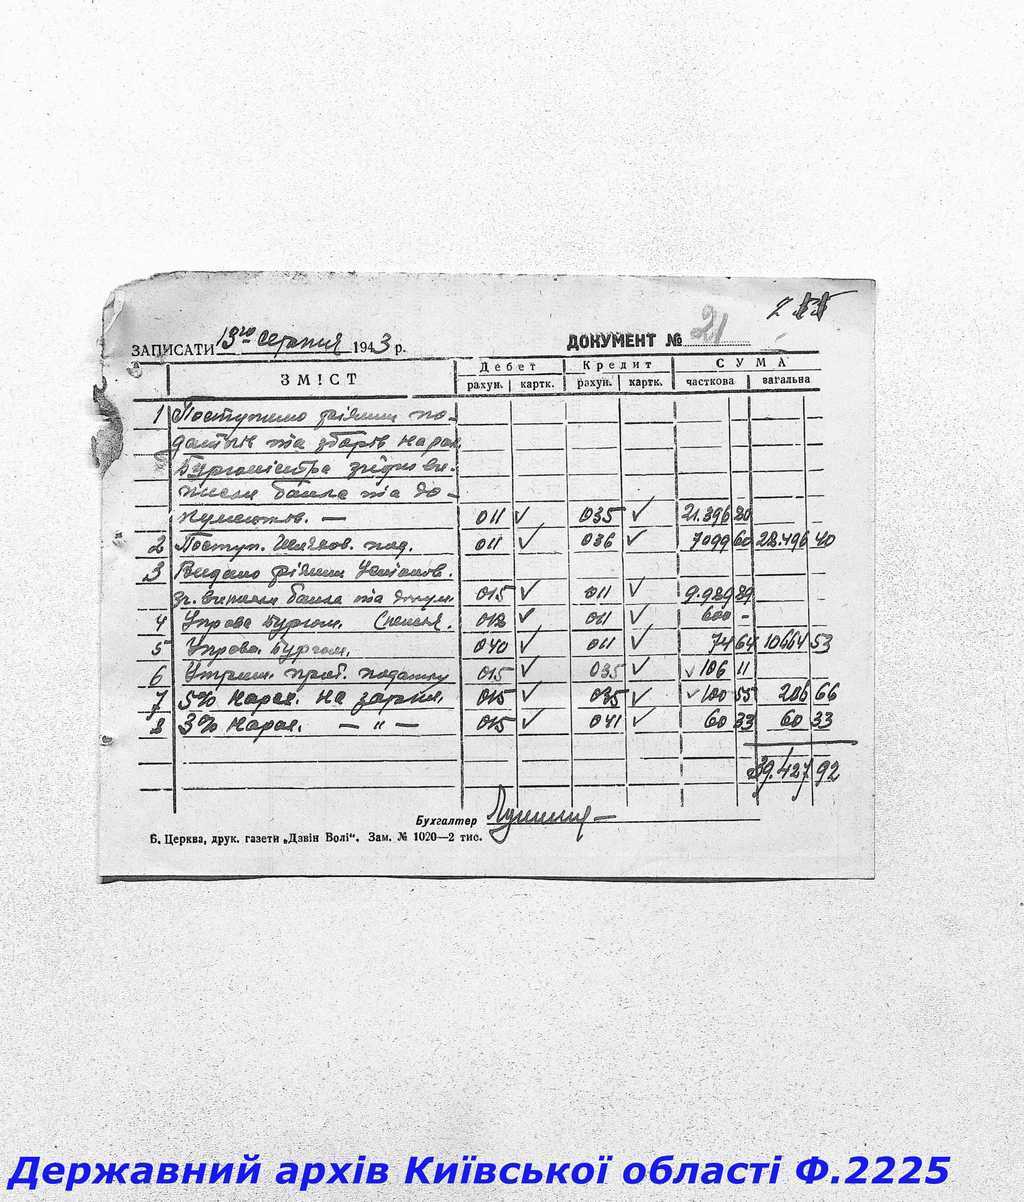 2
ЗАПИСАТИ 13го серпня 1943 р. ДОКУМЕНТ № 21
ЗМІСТ Дебет Кредит СУМА
рахун. картк. рахун. картк. часткова загальна
1 Поступило різних по-
датків та зборів нарах.
Бургомістра згідно ви-
писки банка та до-
кументов. — 011 ✓ 035 ✓ 21.396 80
2 Поступ. под. 011 ✓ 036 ✓ 7099 60 28.496 40
3 Видано різним Установ.
зг. виписки банка та докум. 015 ✓ 011 ✓ 9.989 89
4 Управа Бургом. 018 ✓ 011 ✓ 600 -
5 Управа Бургом. 040 ✓ 011 ✓ 74 64 10664 53
6 Утрим. приб. податку 015 ✓ 035 ✓ ✓ 106 11
7 5% нарах. на зарпл. 015 ✓ 035 ✓ ✓ 100 55 206 66
8 3% нарах. — " — 015 ✓ 041 ✓ 60 33 60 33
39.427 92
Бухгалтер
Б. Церква, друк. газети „Дзвін Волі“. Зам. № 1020—2 тис.
Державний архів Київської області Ф.2225